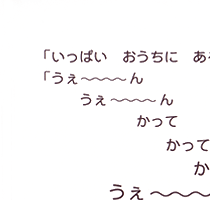 「いっぱい　おうちに　ある
「うぇ〜〜〜〜ん
うぇ〜〜〜〜ん
かって
かって
か
うぇ〜〜〜